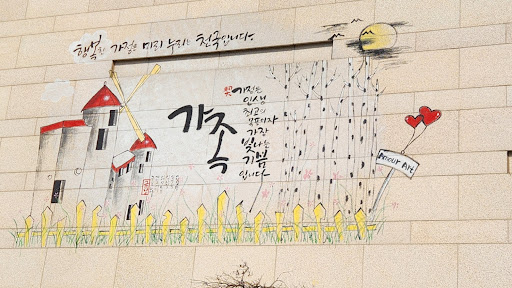 행복한 가정은 미리 누리는 천국입니다.
가족
가정은
인생
최고의
보물이자
가장
빛나는
기쁨
입니다
Anour Art